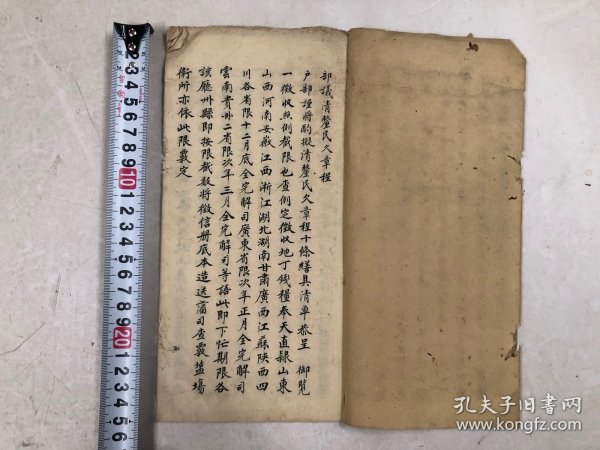 部議清釐民欠章程
户部謹將酌擬清釐民欠章程十條繕具清單恭呈 御覽
一徵收照例截限也查例定徵收地丁錢糧奉天直隸山東
山西河南安徽江西浙江湖北湖南甘肅廣西江蘇陝西四
川各省限十二月底全完解司廣東省限次年正月全完解司
雲南貴州二省限次年三月全完解司等語此即下忙期限各
該廳州縣即按限截數將徵信册底本造送藩司查覈蓋塲
衛所亦依此限覈定
孔夫子旧书网
www.kongfz.com